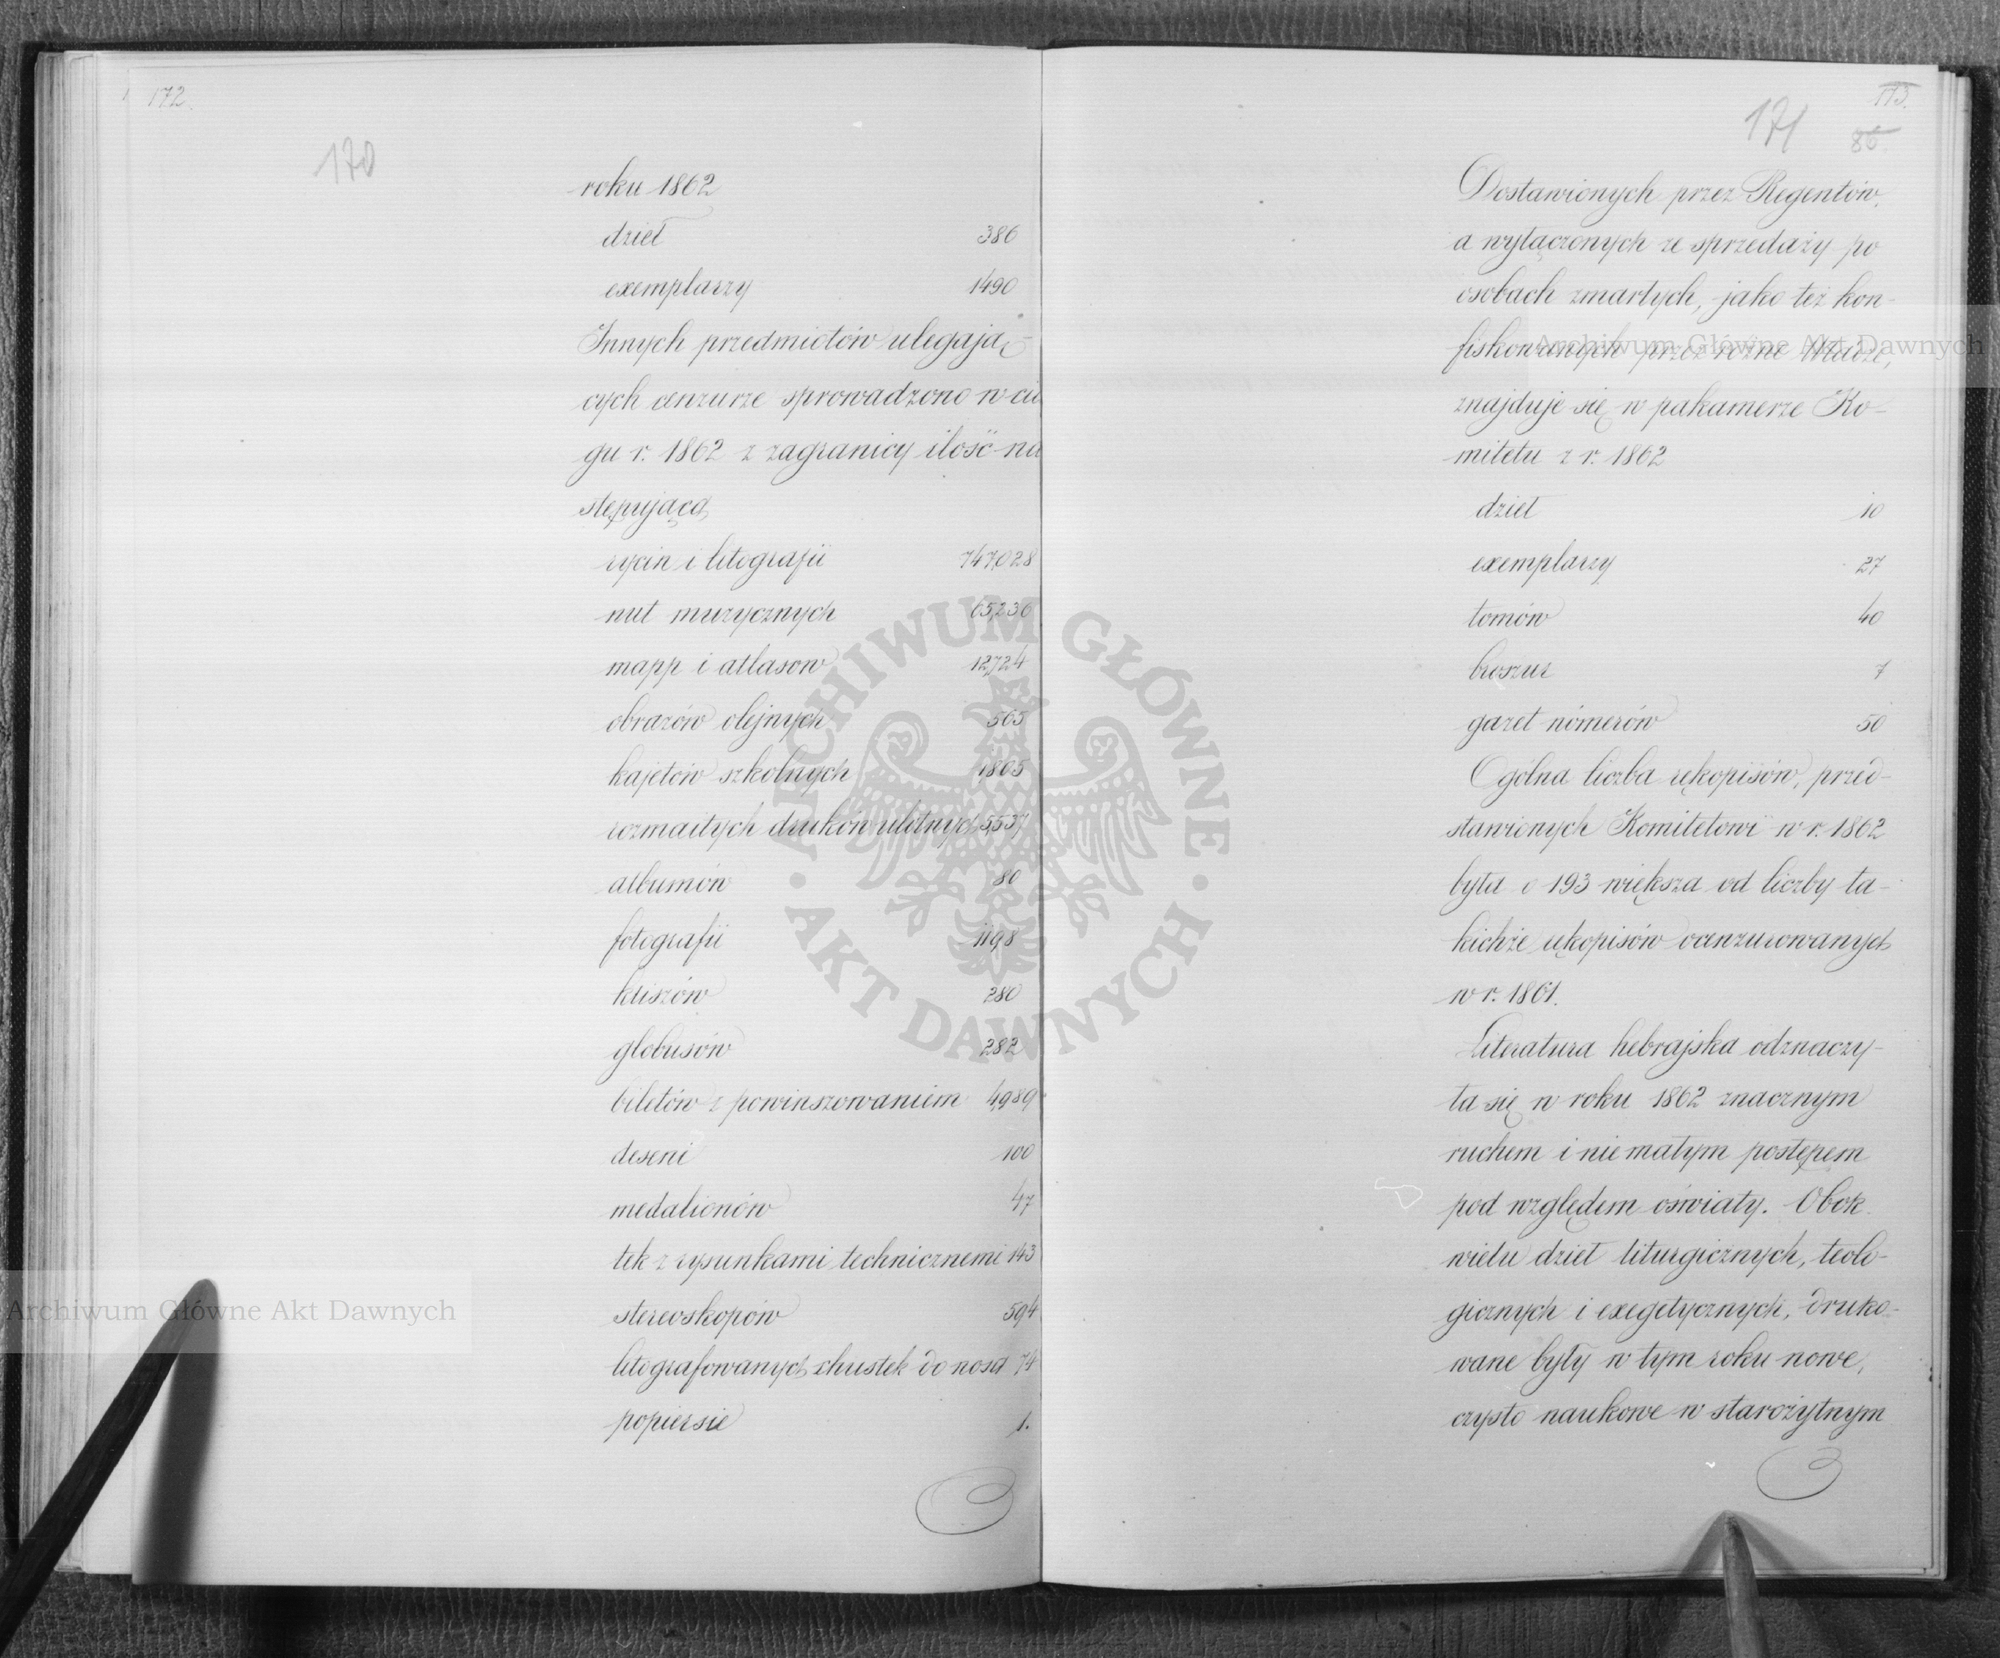 172.
170
roku 1862
dzieł 386
exemplarzy 1490
Innych przedmiotów ulegają-
cych cenzurze sprowadzono w cią
gu r. 1862 z zagranicy ilość na
stępującą
rycin i litografii 747,028
nut muzycznych 65,236
mapp i atlasow 12,724
obrazów olejnych 565
kajetów szkolnych 1865
rozmaitych druków ulotnych 5,537
albumów 80
fotografii 1198
kliszów 280
globusów 282
biletów z powinszowaniem 4,989
deseni 100
medalionów 47
tek z rysunkami technicznemi 143
stereoskopów 594
litografowanych chustek do nosa 74
popiersie 1.
173.
171
86.
Dostawionych przez Regentów,
a wyłączonych ze sprzedaży po
osobach zmarłych, jako też kon-
fiskowanych przez rożne Władze,
znajduje się w pakamerze Ko-
mitetu z r. 1862
dzieł 10
exemplarzy 27
tomów 40
broszur 7
gazet nómerów 50
Ogólna liczba rękopisów, przed-
stawionych Komitetowi w r. 1862
była o 193 większa od liczby ta-
kichże rękopisów ocenzurowanych
w r. 1861.
Literatura hebrajska odznaczy-
ła się w roku 1862 znacznym
ruchem i nie małym postępem
pod względem oświaty. Obok
wielu dzieł liturgicznych, teolo-
gicznych i exegetycznych, druko-
wane były w tym roku nowe,
czysto naukowe w starożytnym
Archiwum Główne Akt Dawnych
Archiwum Główne Akt Dawnych
ARCHIWUM GŁÓWNE
AKT DAWNYCH